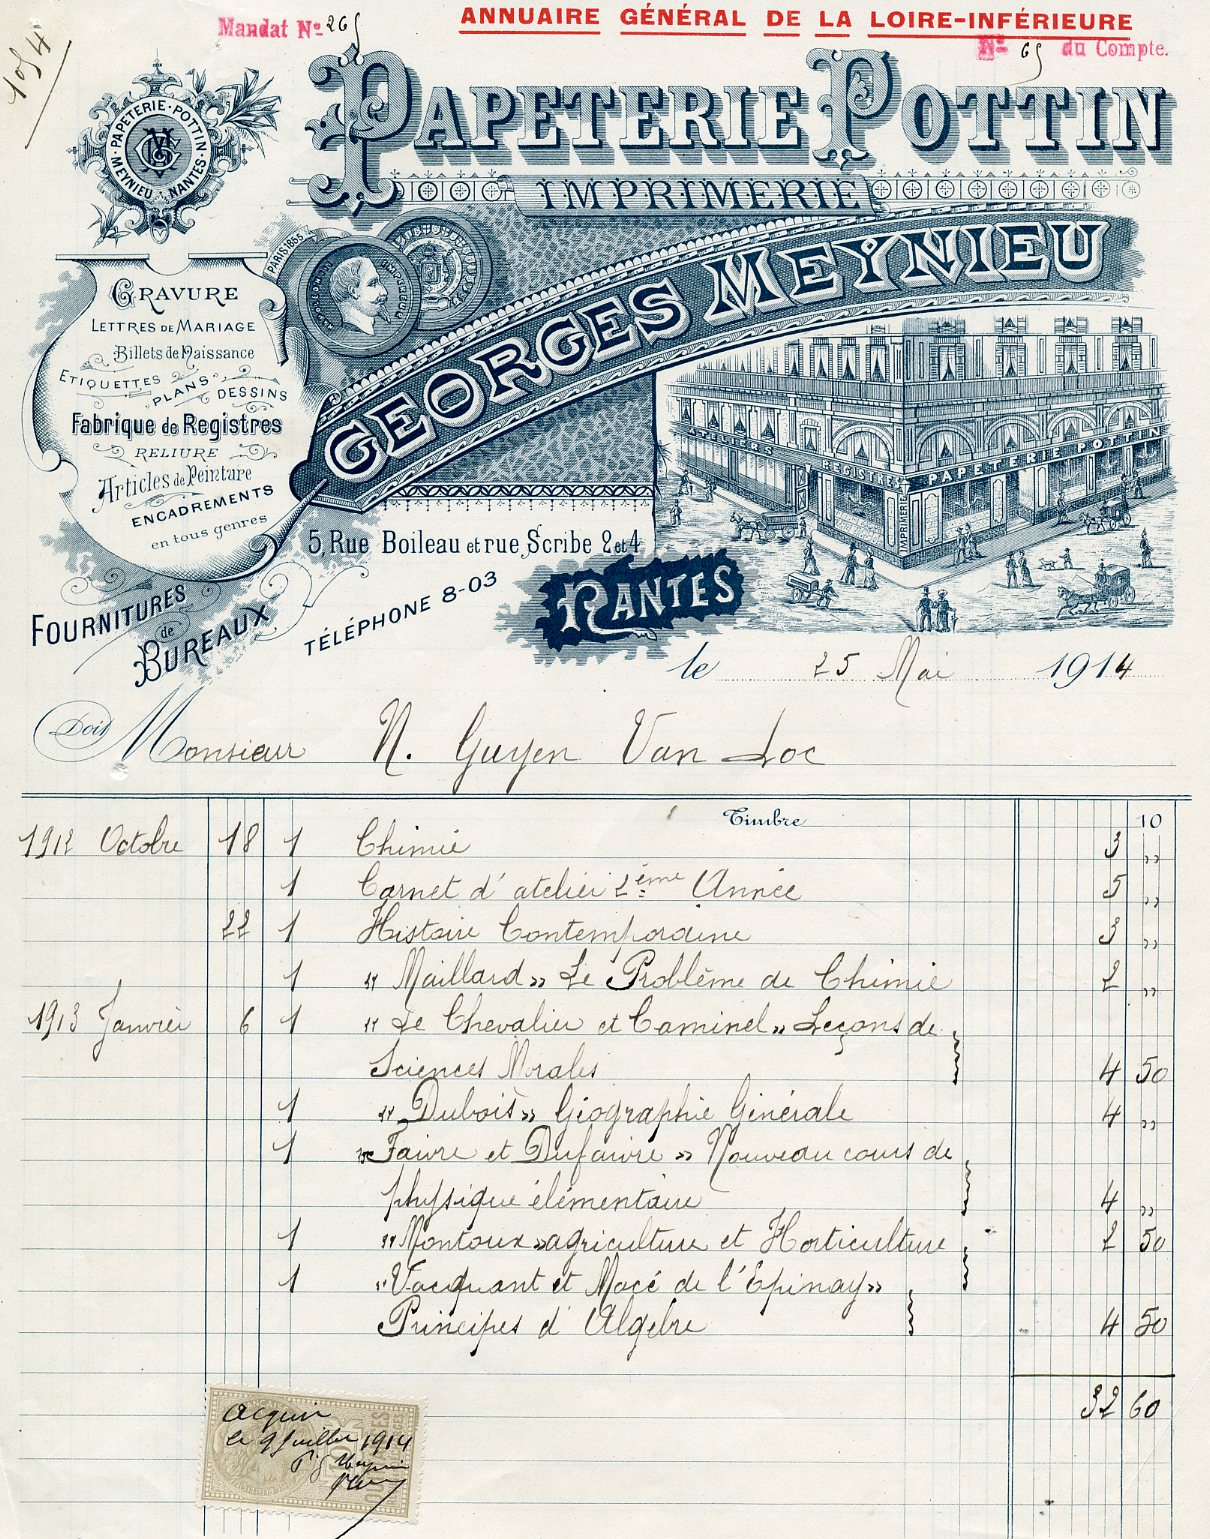 ANNUAIRE GÉNÉRAL DE LA LOIRE-INFÉRIEURE
Mandat Nº 265
Nº 65 du Compte.
1054
PAPETERIE POTTIN
IMPRIMERIE
GEORGES MEYNIEU
PAPETERIE · POTTIN
MEYNIEU NANTES
PARIS 1855
GRAVURE
LETTRES DE MARIAGE
Billets de Naissance
ETIQUETTES PLANS DESSINS
Fabrique de Registres
RELIURE
Articles de Peinture
ENCADREMENTS
en tous genres
REGISTRES PAPETERIE POTTIN
IMPRIMERIE
5, Rue Boileau et rue Scribe 2 et 4
NANTES
FOURNITURES
de
BUREAUX
TÉLÉPHONE 8-03
le 25 Mai 1914
Doit Monsieur N. Guyen Van Loc
Timbre 10
1912 Octobre 18 1 Chimie 3 "
1 Carnet d'atelier 2ème Année 5 "
22 1 Histoire Contemporaine 3 "
1 "Maillard" Le Problème de Chimie 2 "
1913 Janvier 6 1 "Le Chevalier et Caminel" Leçons de
Sciences Morales 4 50
1 "Dubois" Géographie Générale 4 "
1 "Faivre et Dufaivre" Nouveau cours de
physique élémentaire 4 "
1 "Montoux" agriculture et Horticulture 2 50
1 "Vacquant et Macé de l'Epinay"
Principes d'Algèbre 4 50
32 60
Acquit
le 9 Juillet 1914